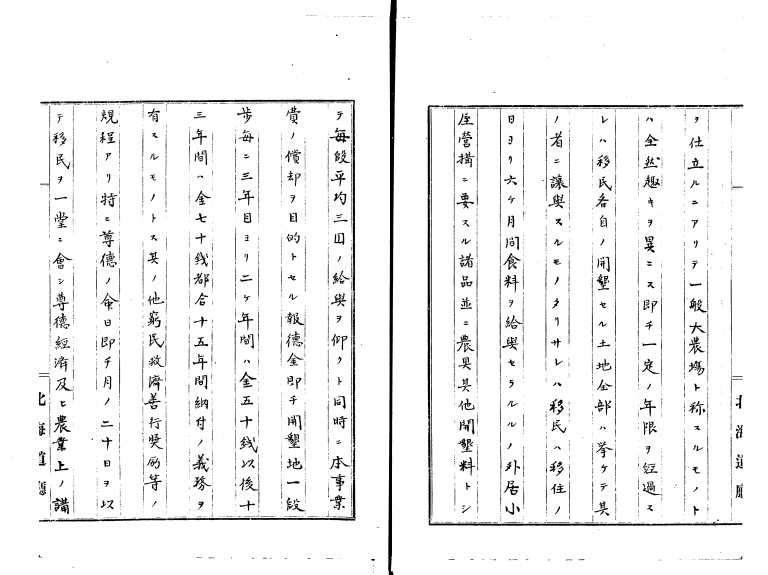 ヲ仕立ルニアリテ一般大農場ト称スルモノト
ハ全然趣キヲ異ニス即チ一定ノ年限ヲ経過ス
レハ移民各自ノ開墾セル土地全部ハ挙ケテ其
ノ者ニ讓與スルモノタリサレハ移民ハ移住ノ
日ヨリ六ケ月間食料ヲ給與セラルルノ外居小
屋営構ニ要スル諸品並ニ農具其他開墾料トシ
北海道廳
テ毎段平均三回ノ給與ヲ仰クト同時ニ本事業
費ノ償却ヲ目的トセル報德金即チ開墾地一段
歩毎ニ三年目ヨリ二ケ年間ハ金五十銭以後十
三年間ハ金七十銭都合十五年間納付ノ義務ヲ
有スルモノトス其ノ他窮民救濟善行奨励等ノ
規程アリ特ニ尊德ノ命日即チ月ノ二十日ヲ以
テ移民ヲ一堂ニ會シ尊德経濟及ヒ農業上ノ講
北海道廳